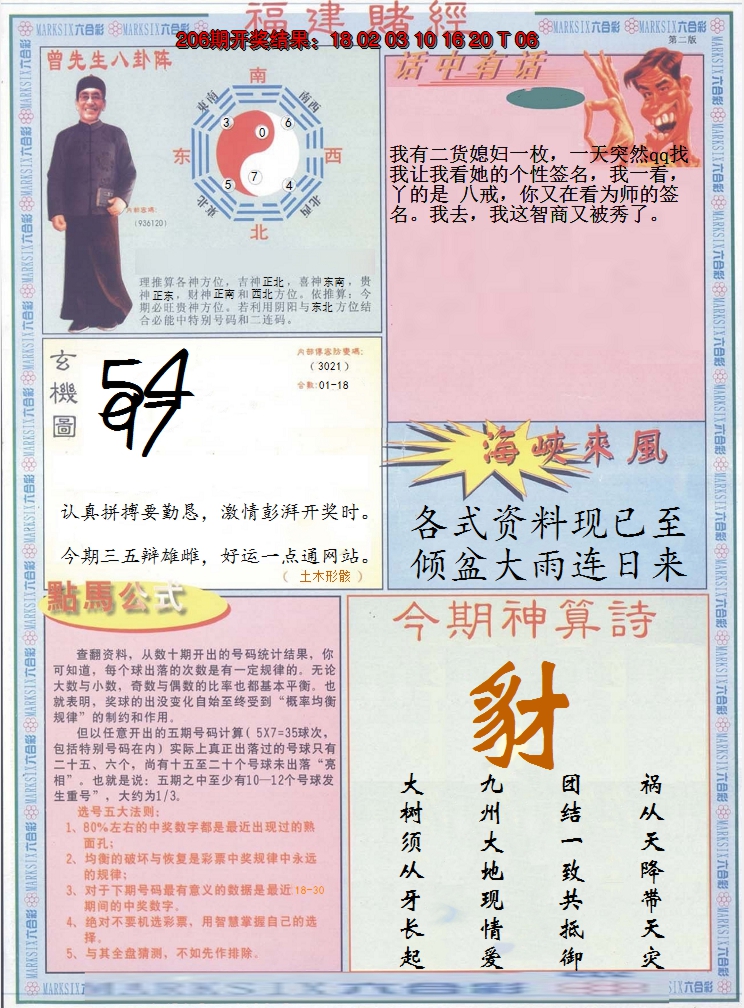 福建賭經
206期开奖结果：18 02 03 10 16 20 T 06
第二版
曾先生八卦阵
南
东南
南西
3
0
6
东
西
5
7
4
東北
北西
北
内部密碼:
(936120)
理推算各神方位，吉神正北，喜神东南，贵
神正东，财神正南和西北方位。依推算：今
期必旺贵神方位。若利用阴阳与东北方位结
合必能中特别号码和二连码。
话中有话
我有二货媳妇一枚，一天突然qq找
我让我看她的个性签名，我一看，
丫的是 八戒，你又在看为师的签
名。我去，我这智商又被秀了。
玄機圖
54
97
内部傳密防變碼:
(3021)
合數:01-18
认真拼搏要勤恳，激情彭湃开奖时。
今期三五辩雄雌，好运一点通网站。
（ 土木形骸 ）
海峽來風
各式资料现已至
倾盆大雨连日来
點馬公式
查翻资料，从数十期开出的号码统计结果，你
可知道，每个球出落的次数是有一定规律的。无论
大数与小数，奇数与偶数的比率也都基本平衡。也
就表明，奖球的出没变化自始至终受到“概率均衡
规律”的制约和作用。
但以任意开出的五期号码计算( 5X7=35球次，
包括特别号码在内) 实际上真正出落过的号球只有
二十五、六个，尚有十五至二十个号球未出落“亮
相”。也就是说：五期之中至少有10—12个号球发
生重号”，大约为1/3。
选号五大法则：
1、80%左右的中奖数字都是最近出现过的熟
面孔；
2、均衡的破坏与恢复是彩票中奖规律中永远
的规律；
3、对于下期号码最有意义的数据是最近18-30
期间的中奖数字。
4、绝对不要机选彩票，用智慧掌握自己的选
择。
5、与其全盘猜测，不如先作排除。
今期神算詩
豺
大树须从牙长起
九州大地现情爱
团结一致共抵御
祸从天降带天灾
MARKSIX六合彩